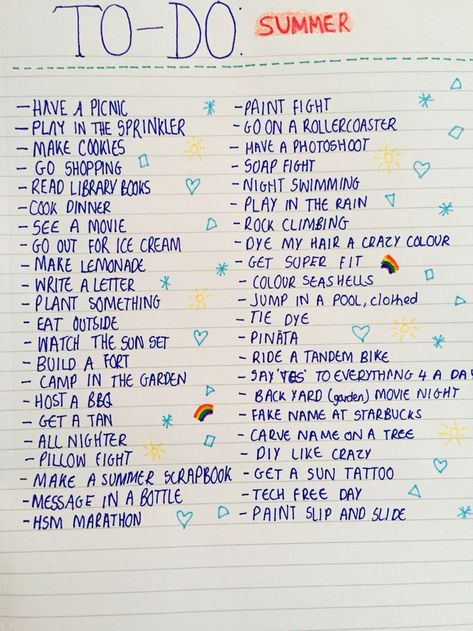 TO-DO: SUMMER
- HAVE A PICNIC
- PLAY IN THE SPRINKLER
- MAKE COOKIES
- GO SHOPPING
- READ LIBRARY BOOKS
- COOK DINNER
- SEE A MOVIE
- GO OUT FOR ICE CREAM
- MAKE LEMONADE
- WRITE A LETTER
- PLANT SOMETHING
- EAT OUTSIDE
- WATCH THE SUN SET
- BUILD A FORT
- CAMP IN THE GARDEN
- HOST A BBQ
- GET A TAN
- ALL NIGHTER
- PILLOW FIGHT
- MAKE A SUMMER SCRAPBOOK
- MESSAGE IN A BOTTLE
- HSM MARATHON
- PAINT FIGHT
- GO ON A ROLLERCOASTER
- HAVE A PHOTOSHOOT
- SOAP FIGHT
- NIGHT SWIMMING
- PLAY IN THE RAIN
- ROCK CLIMBING
- DYE MY HAIR A CRAZY COLOUR
- GET SUPER FIT
- COLOUR SEASHELLS
- JUMP IN A POOL, clothed
- TIE DYE
- PIÑATA
- RIDE A TANDEM BIKE
- SAY 'YES' TO EVERYTHING 4 A DAY
- BACK YARD (garden) MOVIE NIGHT
- FAKE NAME AT STARBUCKS
- CARVE NAME ON A TREE
- DIY LIKE CRAZY
- GET A SUN TATTOO
- TECH FREE DAY
- PAINT SLIP AND SLIDE